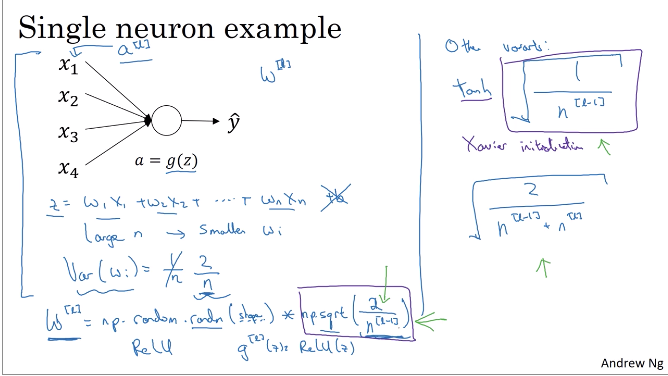 Single neuron example
a^[l]
x₁
x₂
x₃
x₄
ŷ
a = g(z)
w^[l]
z = w₁x₁ + w₂x₂ + ..... + wₙxₙ
Large n → Smaller wᵢ
Var(wᵢ) = 1/n 2/n
W^[l] = np.random.randn(shape) * np.sqrt(2/n^[l-1])
ReLU g^[l](z) = ReLU(z)
Other variants:
tanh √(1/n^[l-1])
Xavier initialization
√(2/(n^[l-1] + n^[l]))
Andrew Ng